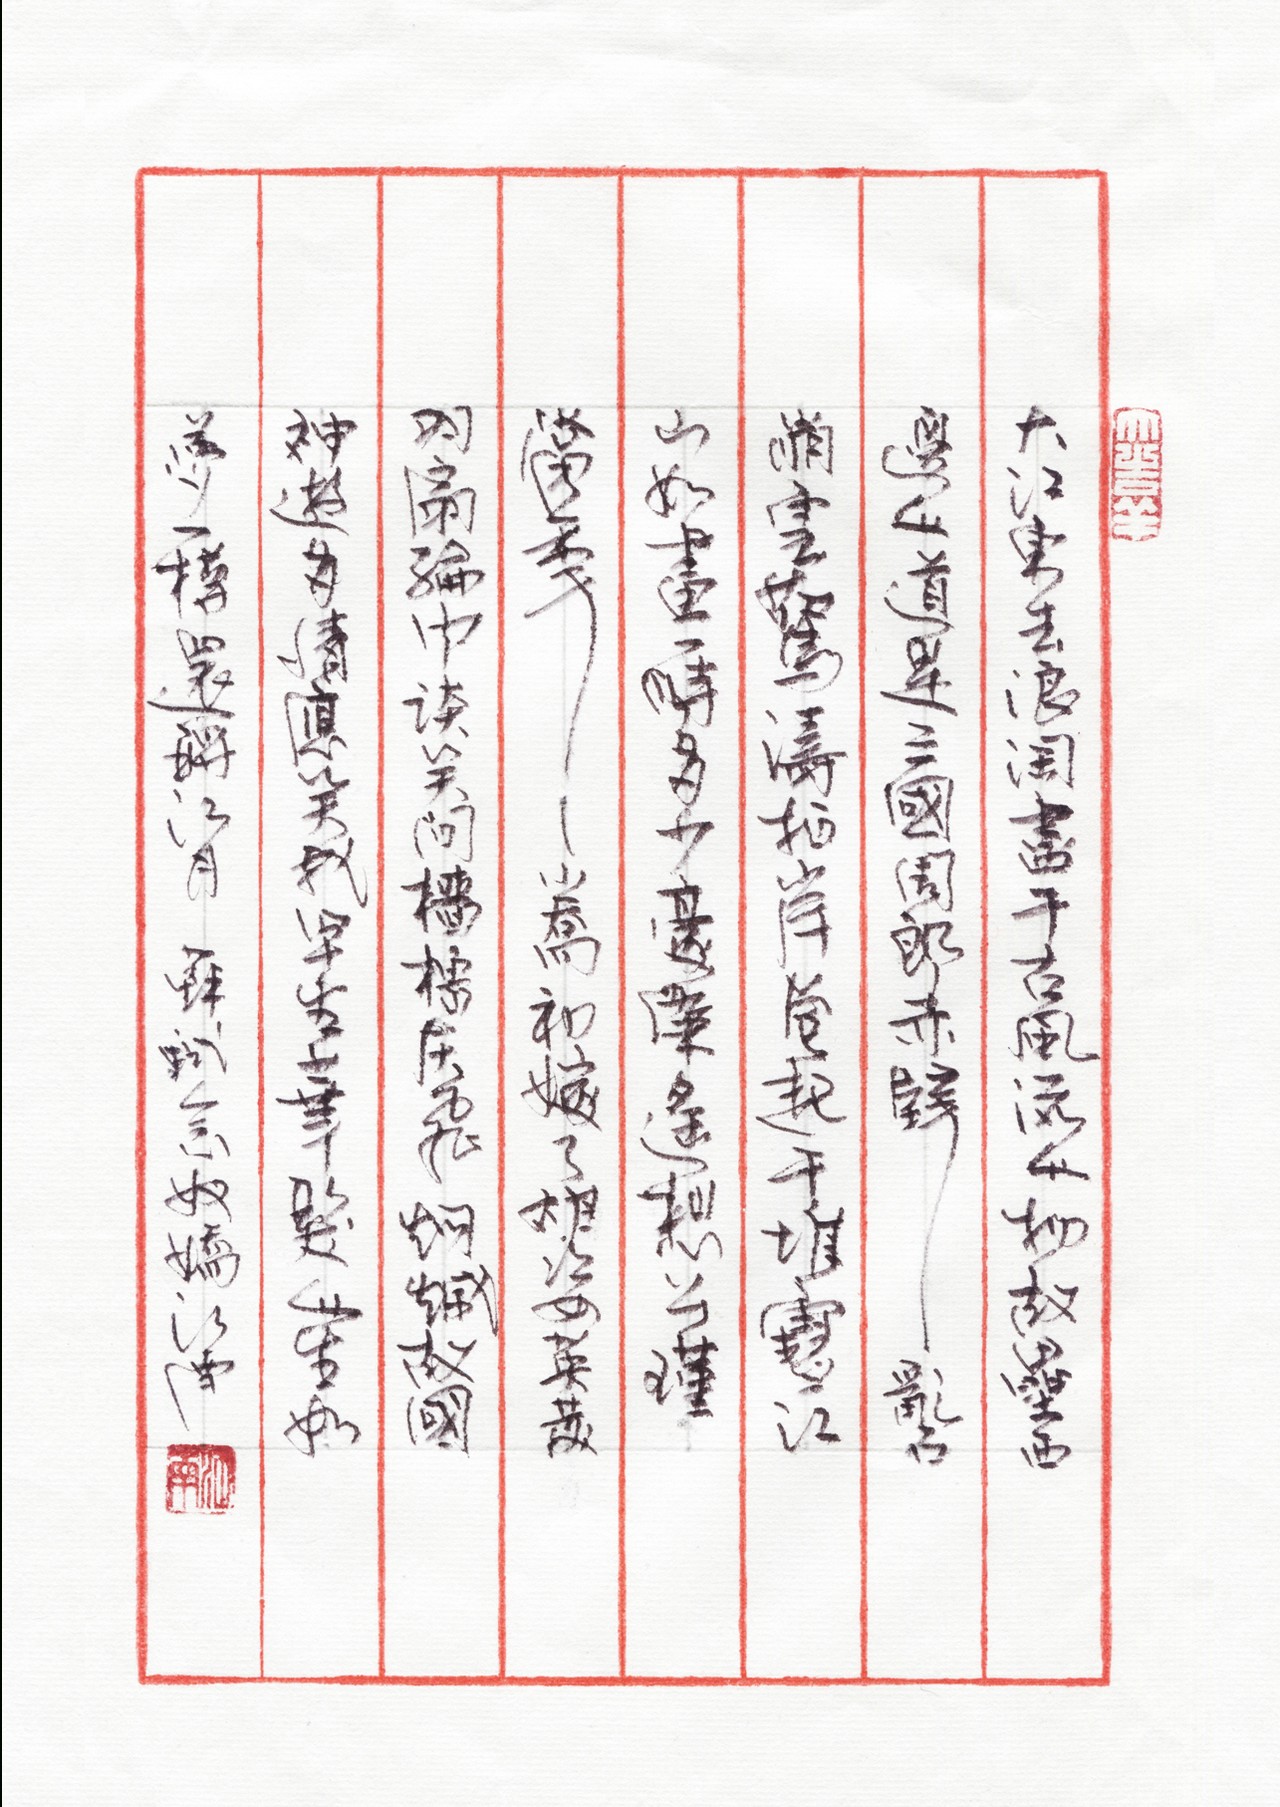 大江東去浪淘盡千古風流人物故壘西
邊人道是三國周郎赤壁亂石
崩雲驚濤拍岸卷起千堆雪江
山如畫一時多少豪傑遙想公瑾
當年小喬初嫁了雄姿英發
羽扇綸巾談笑間檣櫓灰飛煙滅故國
神遊多情應笑我早生華髮人生如
夢一樽還酹江月 蘇軾念奴嬌江南
江南